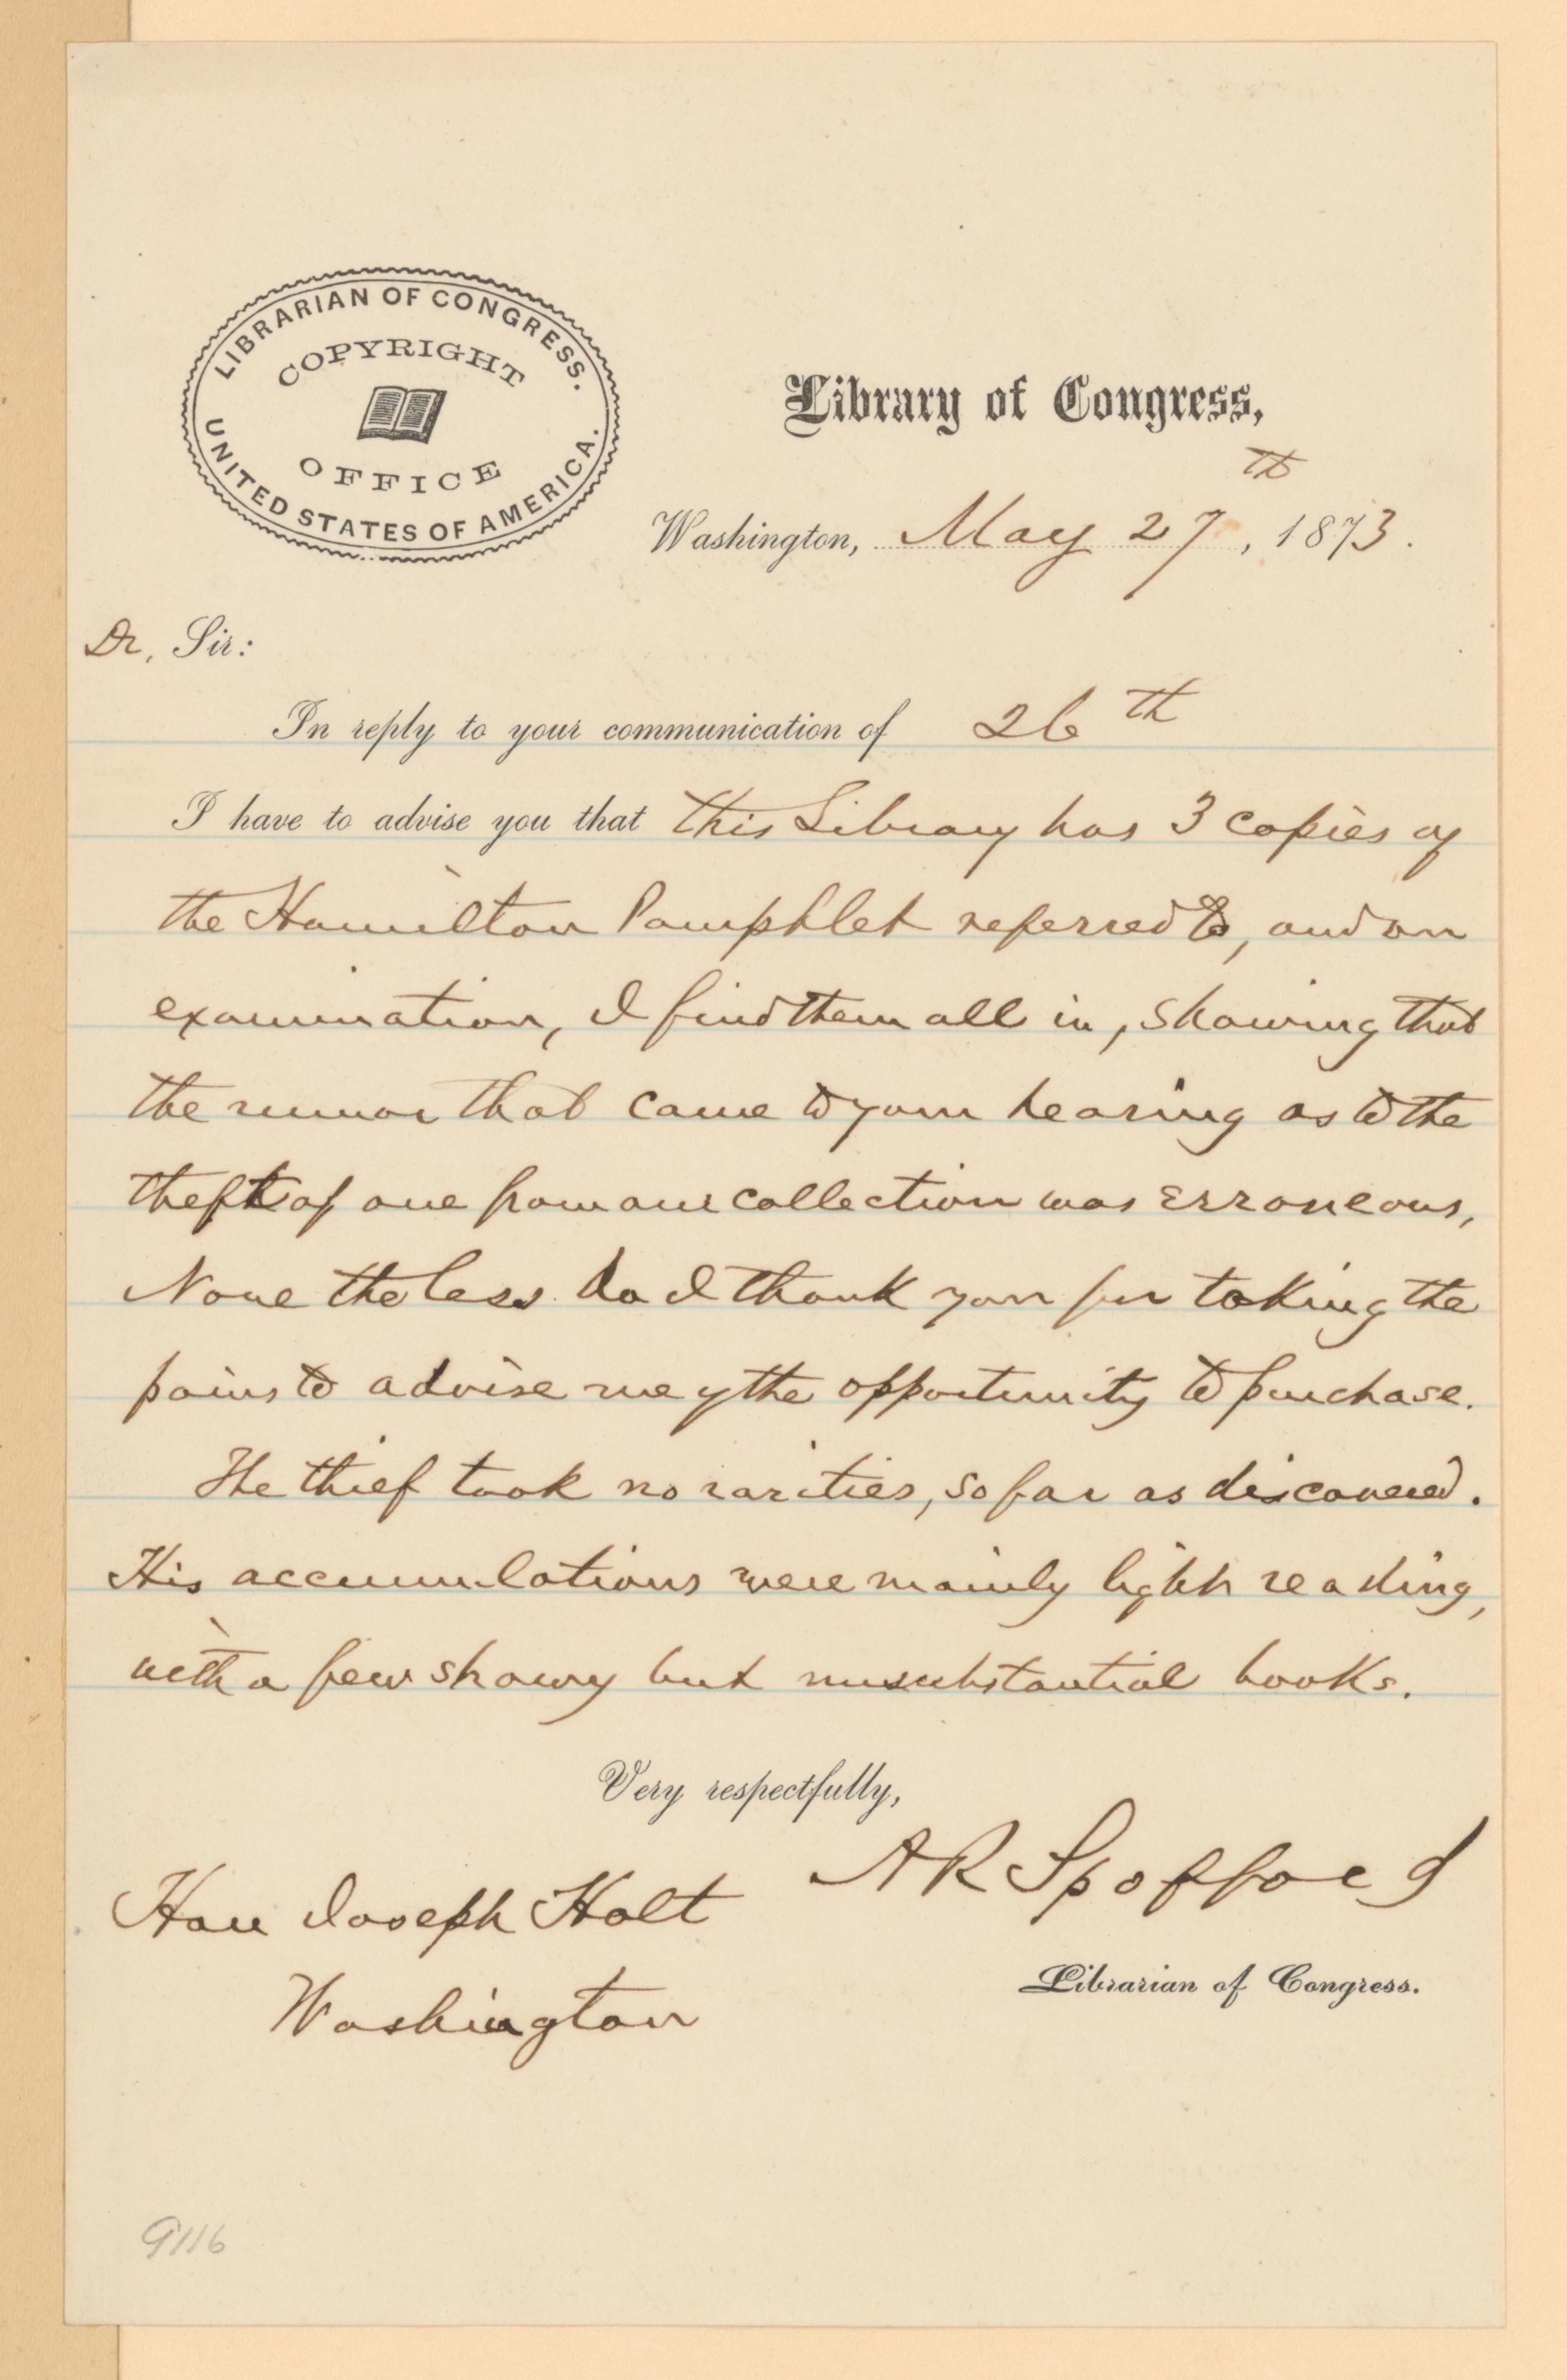 LIBRARIAN OF CONGRESS.
COPYRIGHT
OFFICE
UNITED STATES OF AMERICA.
Library of Congress,
Washington, May 27th, 1873.
Dr. Sir:
In reply to your communication of 26th
I have to advise you that this Library has 3 copies of
the Hamilton Pamphlet referred to, and on
examination, I find them all in, showing that
the rumor that came to your hearing as to the
theft of one from our collection was erroneous,
None the less do I thank you for taking the
pains to advise me of the opportunity to purchase.
The thief took no rarities, so far as discovered.
His accumulations were mainly light reading,
with a few showy but unsubstantial books.
Very respectfully,
A R Spofford
Librarian of Congress.
Hon Joseph Holt
Washington
9116